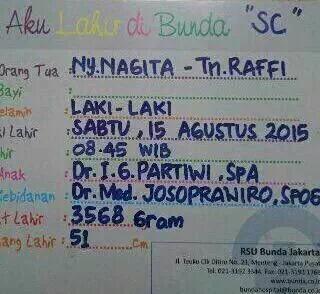 Aku Lahir di Bunda "SC"
Orang Tua : NY. NAGITA - Tn. RAFFI
Bayi :
elamin : LAKI - LAKI
l Lahir : SABTU, 15 AGUSTUS 2015
hir : 08.45 WIB
Anak : Dr. I.G. PARTIWI, SPA
Kebidanan : Dr. Med. JOSOPRANIRO, SPOG
t Lahir : 3568 Gram
ang Lahir : 51 Cm
RSU Bunda Jakarta
Jl. Teuku Cik Ditiro No. 21, Menteng - Jakarta Pusat
Tel. 021-3192 3344, Fax. 021-3191
www.bunda.co.i
bundahospital@bunda.co.i